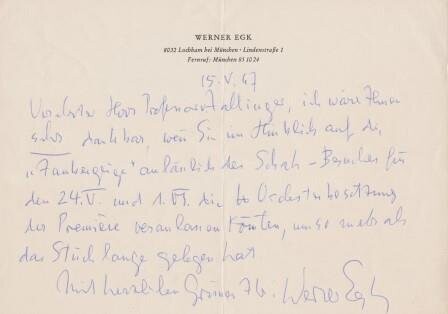 WERNER EGK
8032 Lochham bei München · Lindenstraße 1
Fernruf: München 85 10 24
15. V. 67
Verehrter Herr Professor Zallinger, ich wäre Ihnen
sehr dankbar, wenn Sie im Hinblick auf die
„Zaubergeige" anläßlich des Schah-Besuches für
den 24. V. und 1. VI. die Orchesterbesetzung
der Première veranlassen könnten, umso mehr als
das Stück lange gelegen hat
Mit herzlichen Grüssen Ihr Werner Egk